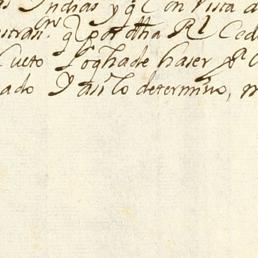 Indias y q̃ Con Vista d
q̃ por dha Rl Ced
Cueto lo q ha de haser
ado Y asi lo determino, m